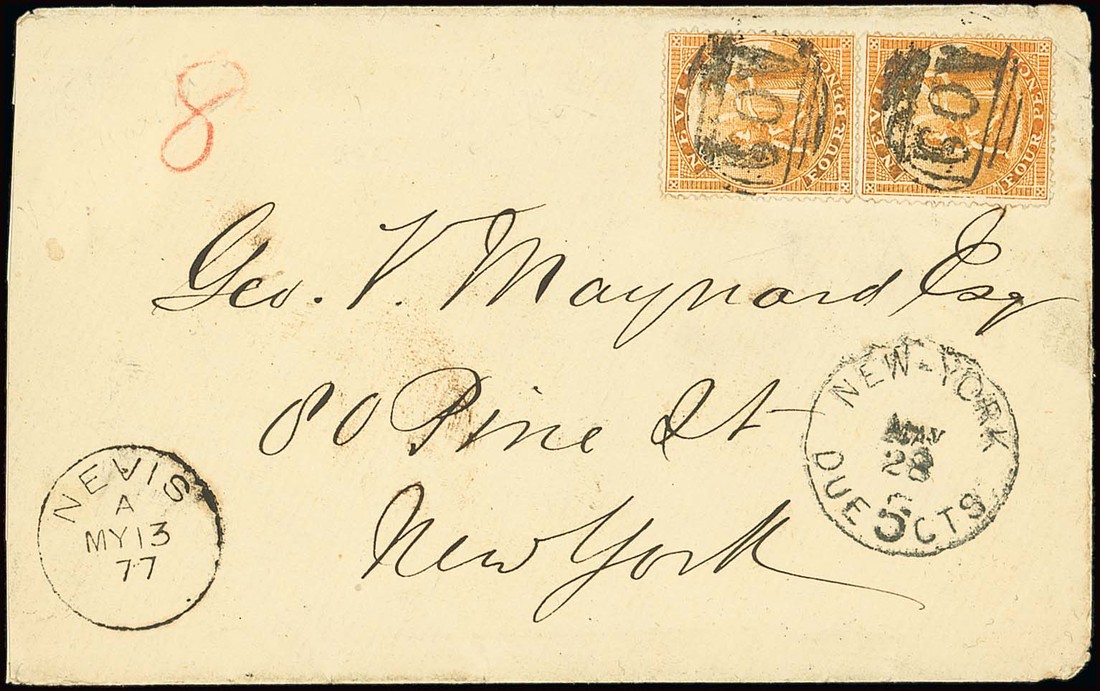 8
NEVIS
FOUR PENCE
A09
NEVIS
FOUR PENCE
A09
Geo. V. Maynard Esq
80 Pine St
New York
NEW-YORK
MAY
28
DUE 5 CTS
NEVIS
A
MY 13
77